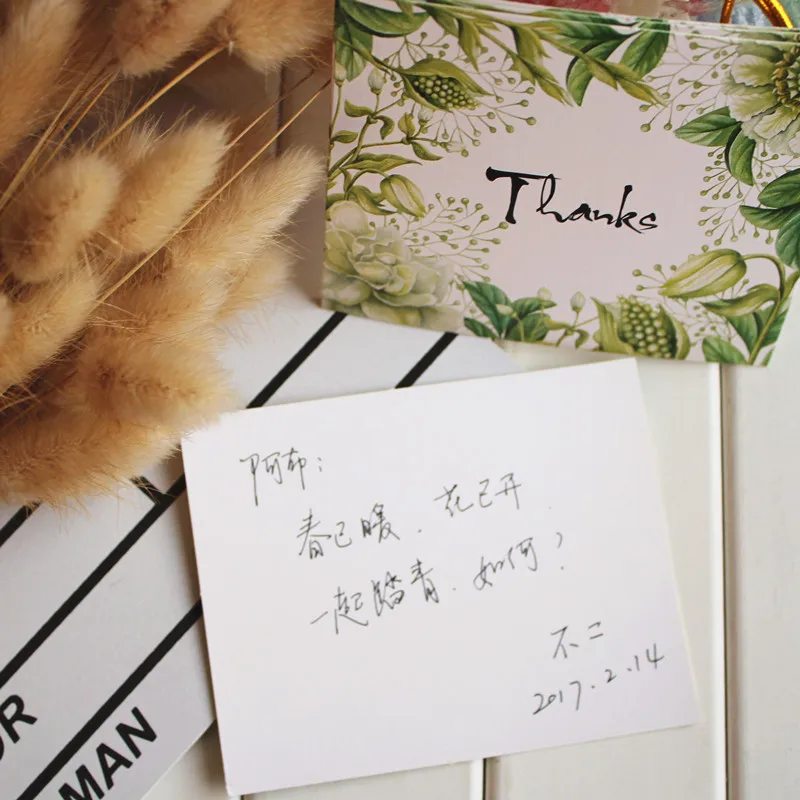 Thanks
阿布：
春已暖．花已开．
一起踏青．如何？
不二
2017.2.14
OR
MAN